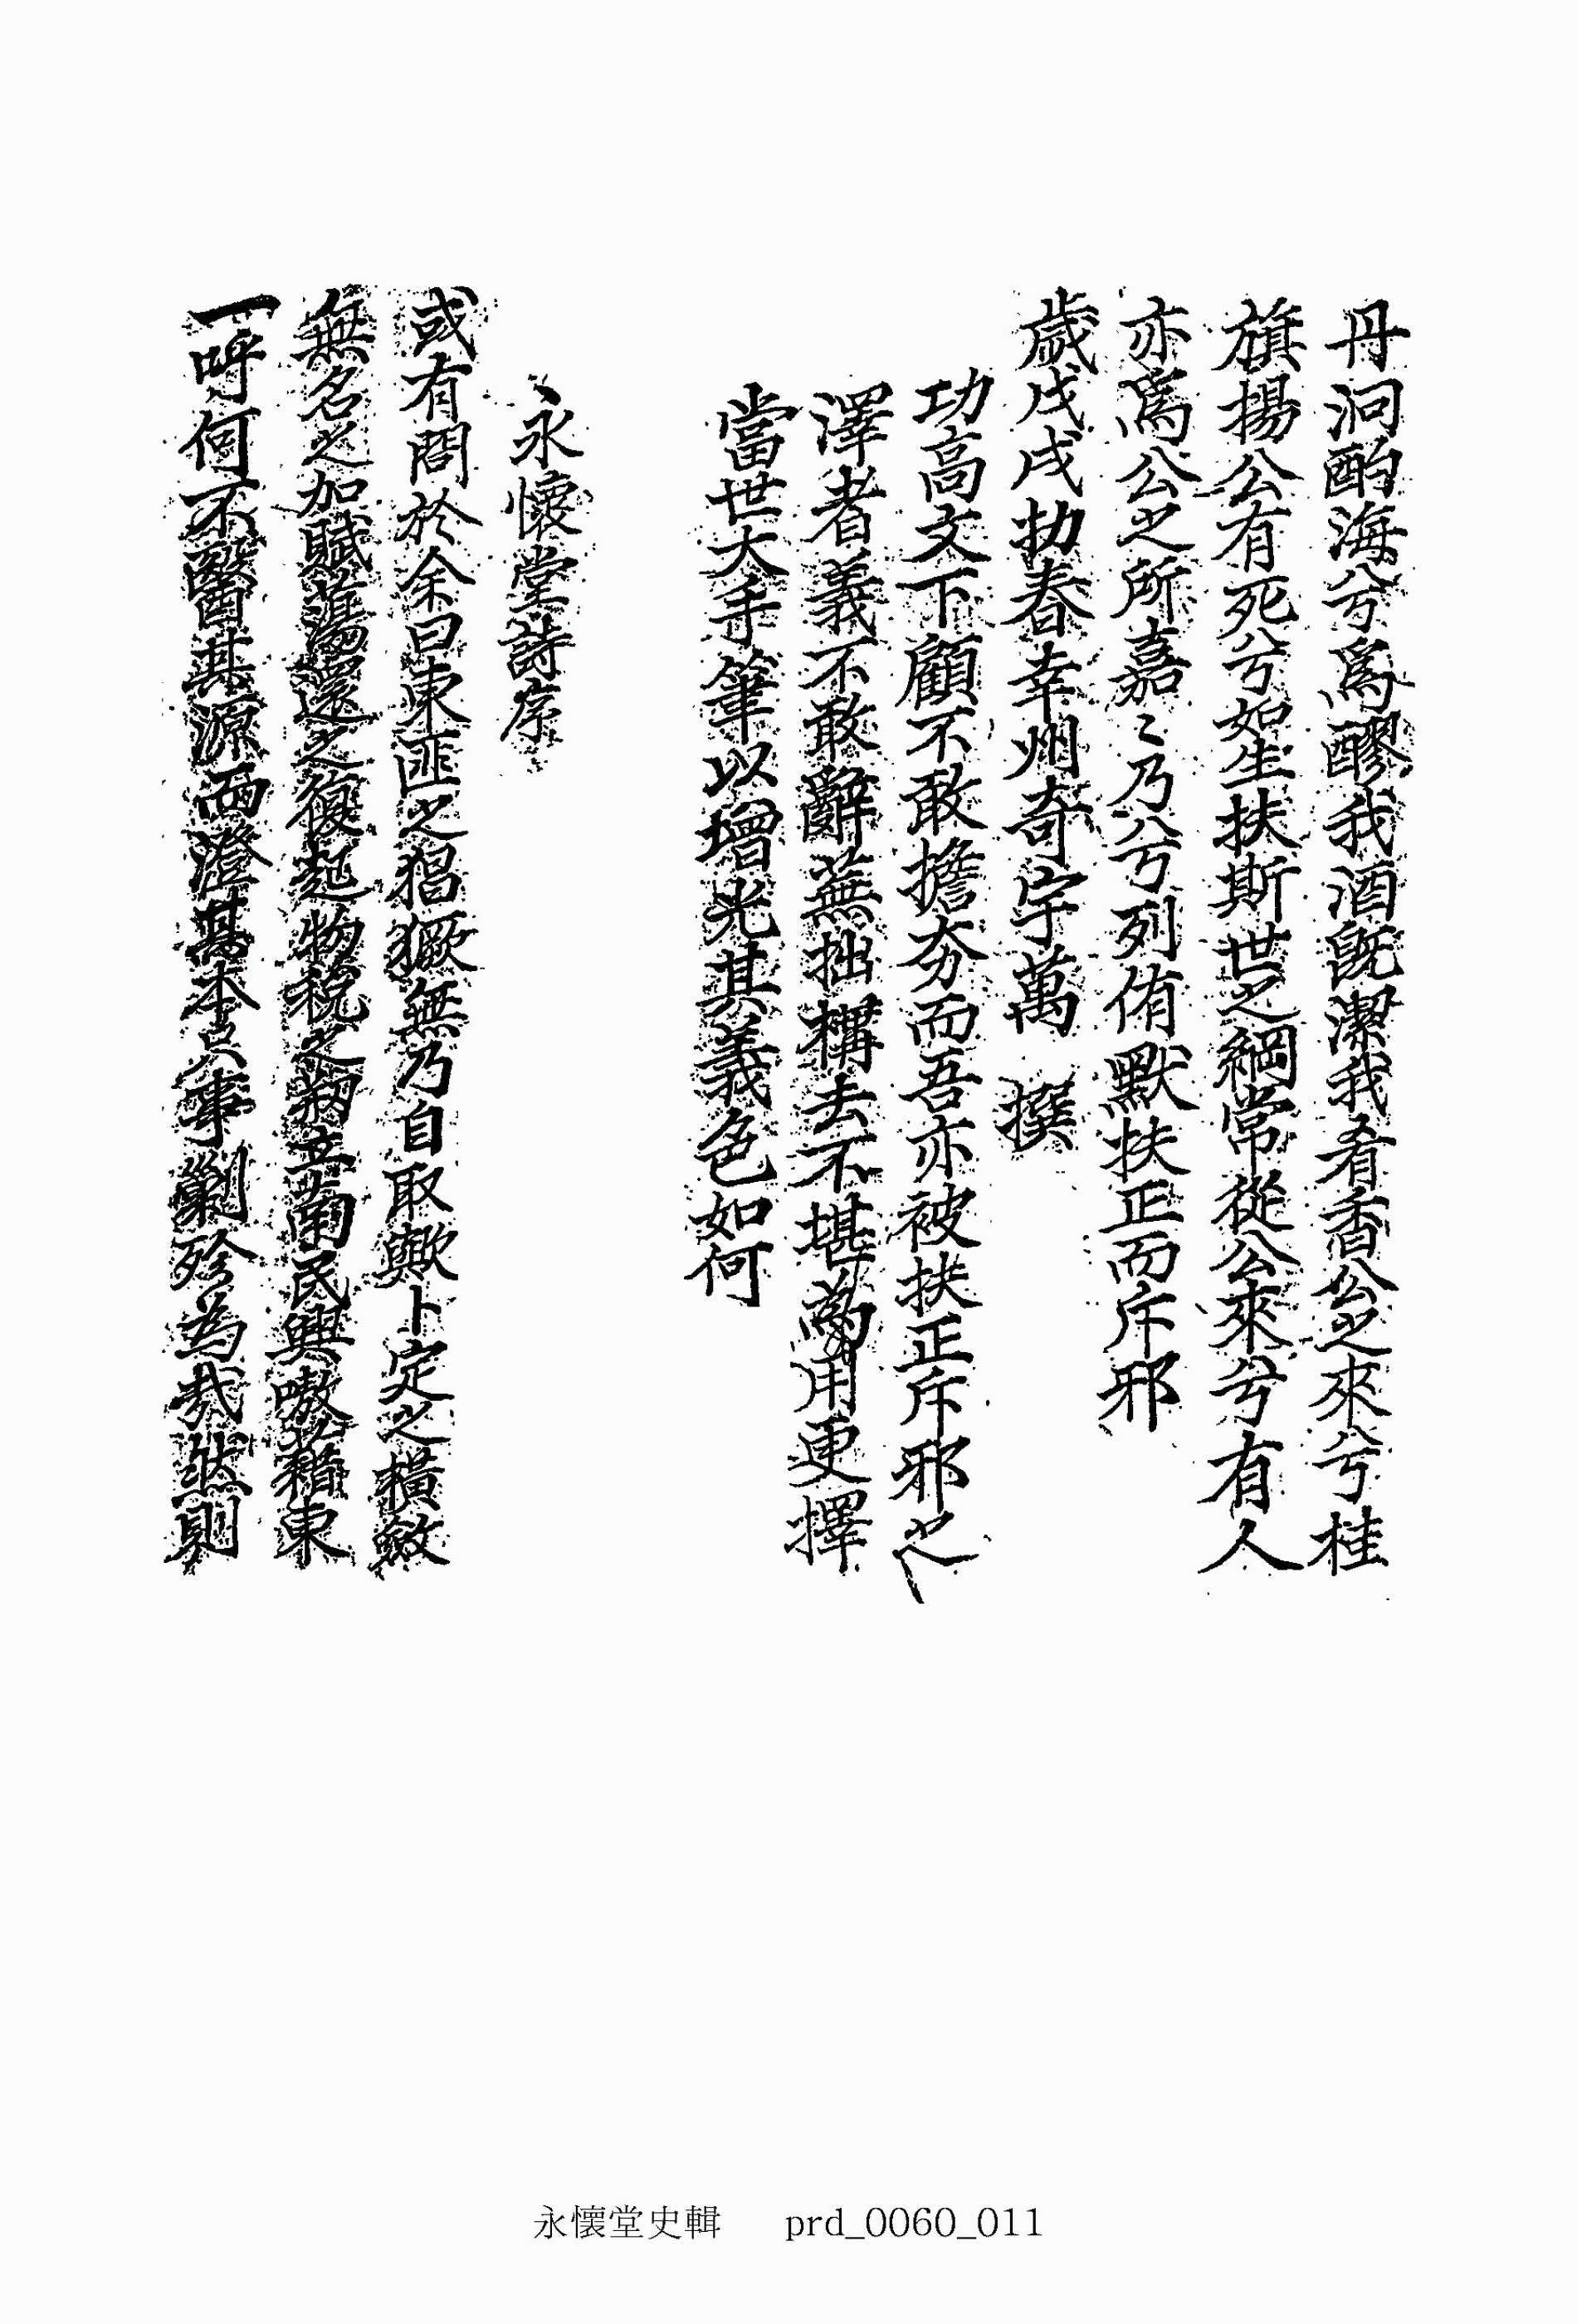 丹泂酌海兮爲醪我酒旣潔我肴香公之來兮桂
旗揚公有死兮如生扶斯世之綱常從公來兮有人
亦爲公之所嘉〻乃兮列侑默扶正而斥邪
歲戊戌抄春幸州奇宇萬 撰
功高文下顧不敢擔夯而吾亦被扶正斥邪之
澤者義不敢辭蕪拙構去不堪用更擇
當世大手筆以增光其義色如何
永懷堂詩序
或有問於余曰東匪之猖獗無乃自取歟卜定之橫斂
無名之加賦蕩還之復起物稅之刱立南民興嗷藉東
一呼何不醫其源而澄其本專事剿殄為哉然則
永懷堂史輯 prd_0060_011